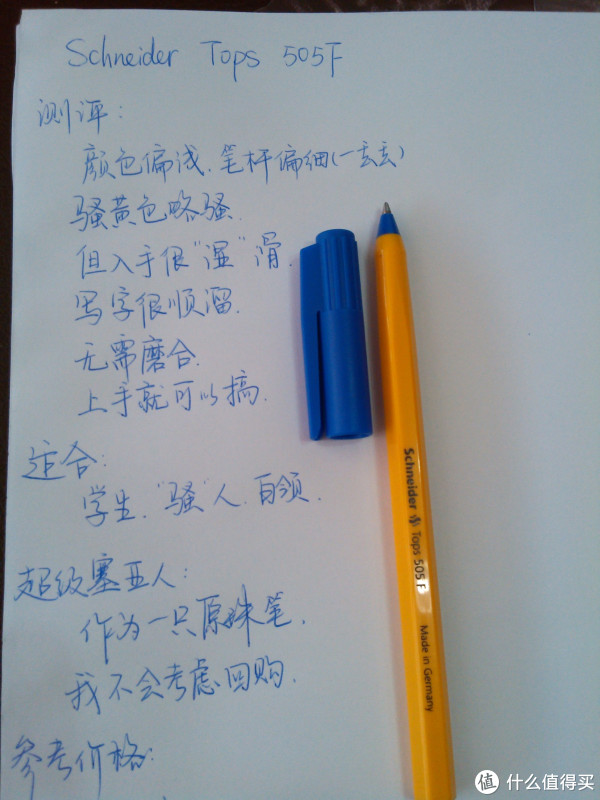 Schneider Tops 505F
测评:
颜色偏浅、笔杆偏细(一去去)
骚黄色略骚.
但入手很"湿"滑.
写字很顺溜.
无需磨合.
上手就可以搞.
适合:
学生、"骚"人、白领.
超级塞亚人:
作为一只原珠笔,
我不会考虑回购.
参考价格:
Schneider Tops 505 F Made in Germany
值 什么值得买